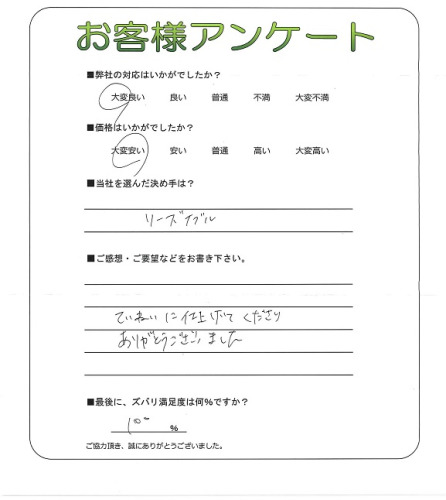 お客様アンケート
■弊社の対応はいかがでしたか？
大変良い 良い 普通 不満 大変不満
■価格はいかがでしたか？
大変安い 安い 普通 高い 大変高い
■当社を選んだ決め手は？
リーズナブル
■ご感想・ご要望などをお書き下さい。
ていねいに仕上げてくださり
ありがとうございました
■最後に、ズバリ満足度は何%ですか？
100 %
ご協力頂き、誠にありがとうございました。